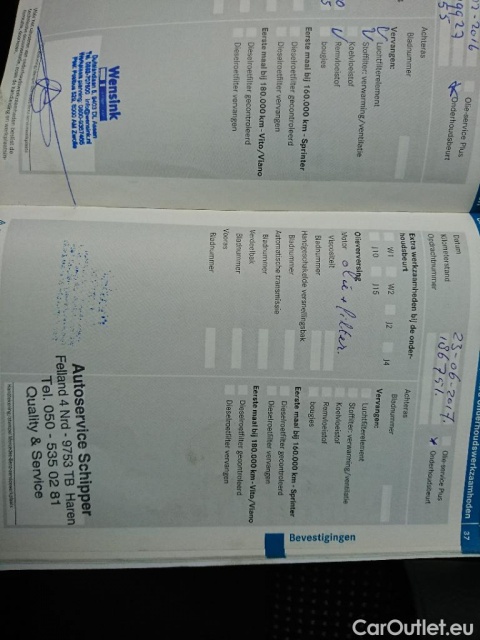 Achteras
Bladnummer
Olie-service Plus
Onderhoudsbeurt
Vervangen:
Luchtfilterelement
Stoffilter: verwarming/ventilatie
Koelvloeistof
Remvloeistof
bougies
Eerste maal bij 160.000 km - Sprinter
Dieselroetfilter gecontroleerd
Dieselroetfilter vervangen
Eerste maal bij 180.000 km - Vito/Viano
Dieselroetfilter gecontroleerd
Dieselroetfilter vervangen
Wensink
onderhoudswerkzaamheden
37
Datum
23-06-2017
Kilometerstand
Opdrachtnummer
Olie-service Plus
Onderhoudsbeurt
Extra werkzaamheden bij de onder-
houdsbeurt
W1
W2
J2
J4
J10
J15
Olieverversing
Motor olie + filter.
Viscositeit
Bladnummer
Handgeschakelde versnellingsbak
Bladnummer
Automatische transmissie
Bladnummer
Verdeelbak
Bladnummer
Vooras
Bladnummer
Achteras
Bladnummer
Vervangen:
Luchtfilterelement
Stoffilter: verwarming/ventilatie
Koelvloeistof
Remvloeistof
bougies
Eerste maal bij 160.000 km - Sprinter
Dieselroetfilter gecontroleerd
Dieselroetfilter vervangen
Eerste maal bij 180.000 km - Vito/Viano
Dieselroetfilter gecontroleerd
Dieselroetfilter vervangen
Autoservice Schipper
Felland 4 Nrd - 9753 TB Haren
Tel. 050 - 535 02 81
Quality & Service
Bevestigingen
CarOutlet.eu